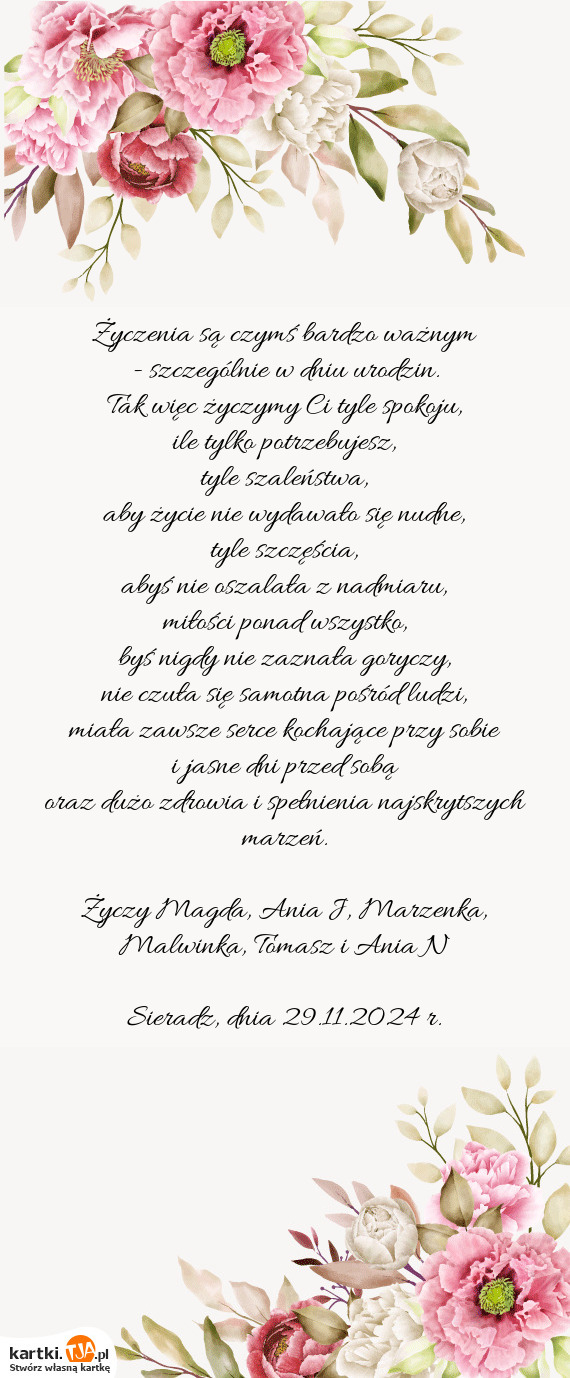 Życzenia są czymś bardzo ważnym
- szczególnie w dniu urodzin.
Tak więc życzymy Ci tyle spokoju,
ile tylko potrzebujesz,
tyle szaleństwa,
aby życie nie wydawało się nudne,
tyle szczęścia,
abyś nie oszalała z nadmiaru,
miłości ponad wszystko,
byś nigdy nie zaznała goryczy,
nie czuła się samotna pośród ludzi,
miała zawsze serce kochające przy sobie
i jasne dni przed sobą
oraz dużo zdrowia i spełnienia najskrytszych
marzeń.
Życzy Magda, Ania J, Marzenka,
Malwinka, Tomasz i Ania N
Sieradz, dnia 29.11.2024 r.
kartki.TJA.pl
Stwórz własną kartkę